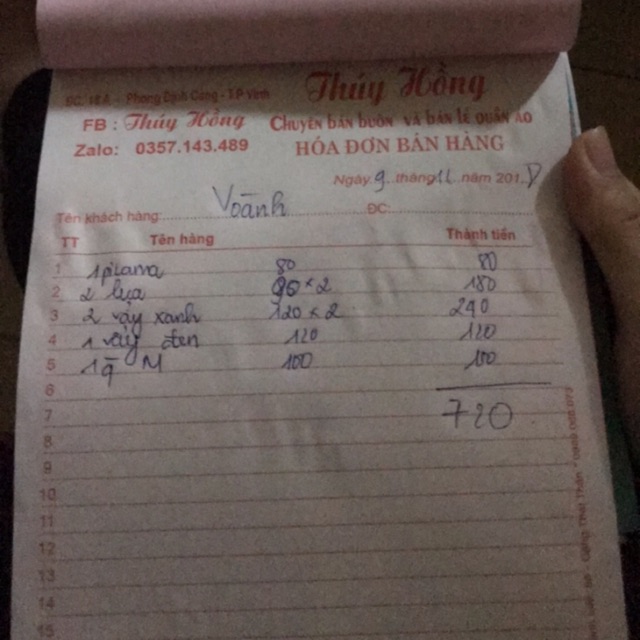 Thúy Hồng
ĐC: 18A - Phong Định Cảng - T.P Vinh
FB : Thúy Hồng
CHUYÊN BÁN BUÔN VÀ BÁN LẺ QUẦN ÁO
Zalo: 0357.143.489
HÓA ĐƠN BÁN HÀNG
Ngày 9 tháng 11 năm 201
Tên khách hàng: Voành ĐC:
TT Tên hàng Thành tiền
1 1 pijama 80 80
2 2 lụa 90 × 2 180
3 2 váy xanh 120 × 2 240
4 1 váy đen 120 120
5 1 q̄ M 100 100
6
7 720
8
9
10
11
12
13
14
15